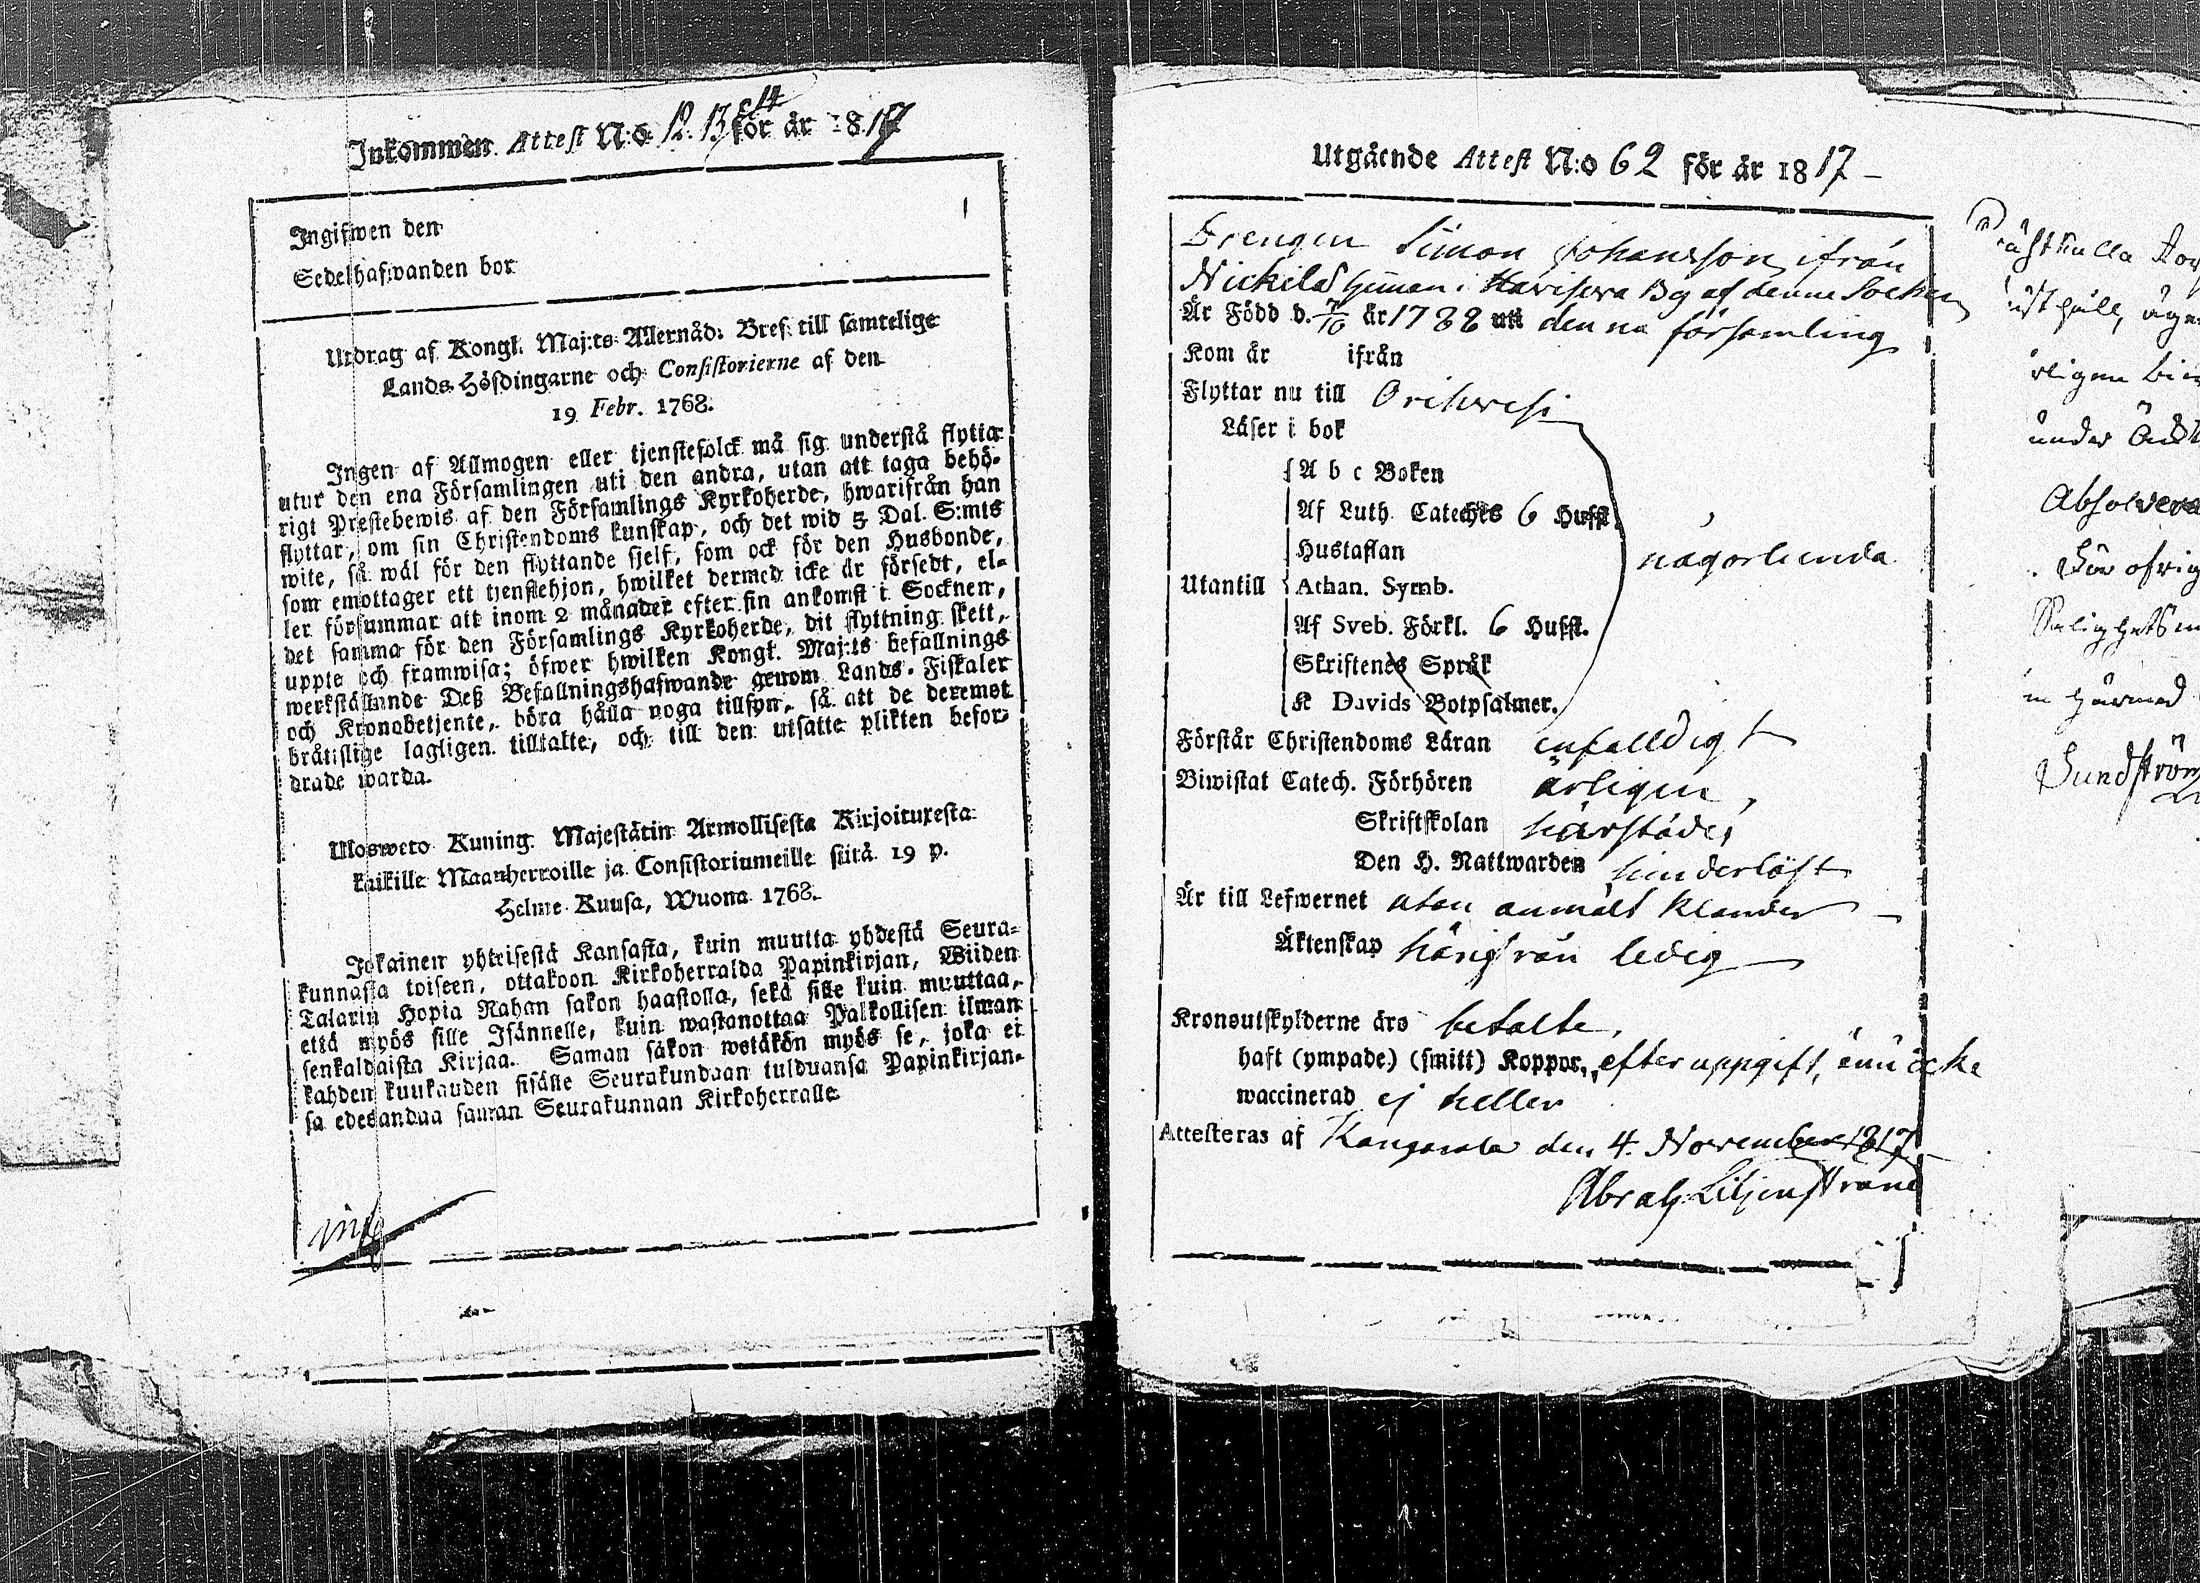 Inkommen Attest N:o 12. 13 & 14 för år 1817
Ingifwen den
Sedelhafwanden bor
Utdrag af Kongl. Maj:ts Allernåd. Bref till samtelige
Lands-Höfdingarne och Consistorierne af den
19 Febr. 1768.
Ingen af Allmogen eller tjenstefolck må sig understå flytta
utur den ena Församlingen uti den andra, utan att taga behö-
rigt Prestebewis af den Församlings Kyrkoherde, hwarifrån han
flyttar, om sin Christendoms kunskap, och det wid 5 Dal. S:mts
wite, så wäl för den flyttande sjelf, som ock för den Husbonde,
som emottager ett tjenstehjon, hwilket dermed icke är försedt, el-
ler försummar att inom 2 månader efter sin ankomst i Socknen,
det samma för den Församlings Kyrkoherde, dit flyttning skett,
uppte och framwisa; öfwer hwilken Kongl. Maj:ts befallnings
werkställande Deß Befallningshafwande genom Lands-Fiskaler
och Kronobetjente, böra hålla noga tillsyn, så att de deremot
bråtislige lagligen tilltalte, och till den utsatte plikten befor-
drade warda.
Ulosweto Kuning. Majestätin Armollisesta Kirjoituxesta
kaikille Maanherroille ja Consistoriumeille siitä 19 p.
Helme Kuusa, Wuona 1768.
Jokainen yhteisestä Kansasta, kuin muutta yhdestä Seura-
kunnasta toiseen, ottakoon Kirkoherralda Papinkirjan, Wiiden
Talarin Hopia Rahan sakon haastolla, sekä sille kuin muuttaa,
että myös sille Isännelle, kuin wastanottaa Palkollisen ilman
senkaldaista Kirjaa. Saman sakon wetäkön myös se, joka ei
kahden kuukauden sisälle Seurakundaan tulduansa Papinkirjan-
sa edesandaa saman Seurakunnan Kirkoherralle
Utgående Attest N:o 62 för år 1817
Drengen Simon Johansson ifrån
Nickilä hemman i Havisevа By af denne Socken
Är Född d. 7/10 år 1788 uti denna församling
Kom år ifrån
Flyttar nu till Orihwesi
Läser i bok
A b c Boken
Af Luth. Cateches 6 Hufst.
Hustaflan
någorlunda
Utantill Athan. Symb.
Af Sveb. Förkl. 6 Hufst.
Skriftenes Språk
K Davids Botpsalmer.
Förstår Christendoms Läran enfalldigt
Biwistat Catech. Förhören årligen,
Skriftskolan härstädes
Den H. Nattwarden hinderlöst
Är till Lefwernet utan anmält klander
Äktenskap härifrån ledig
Kronoutskylderne äro betalte,
haft (ympade) (smitt) Koppor, efter uppgift, ännu icke
waccinerad ej heller
Attesteras af Kangasala den 4. November 1817
Abrah. Liljenstrand
under
Absolvera
För öfrig
härmed
Sundström